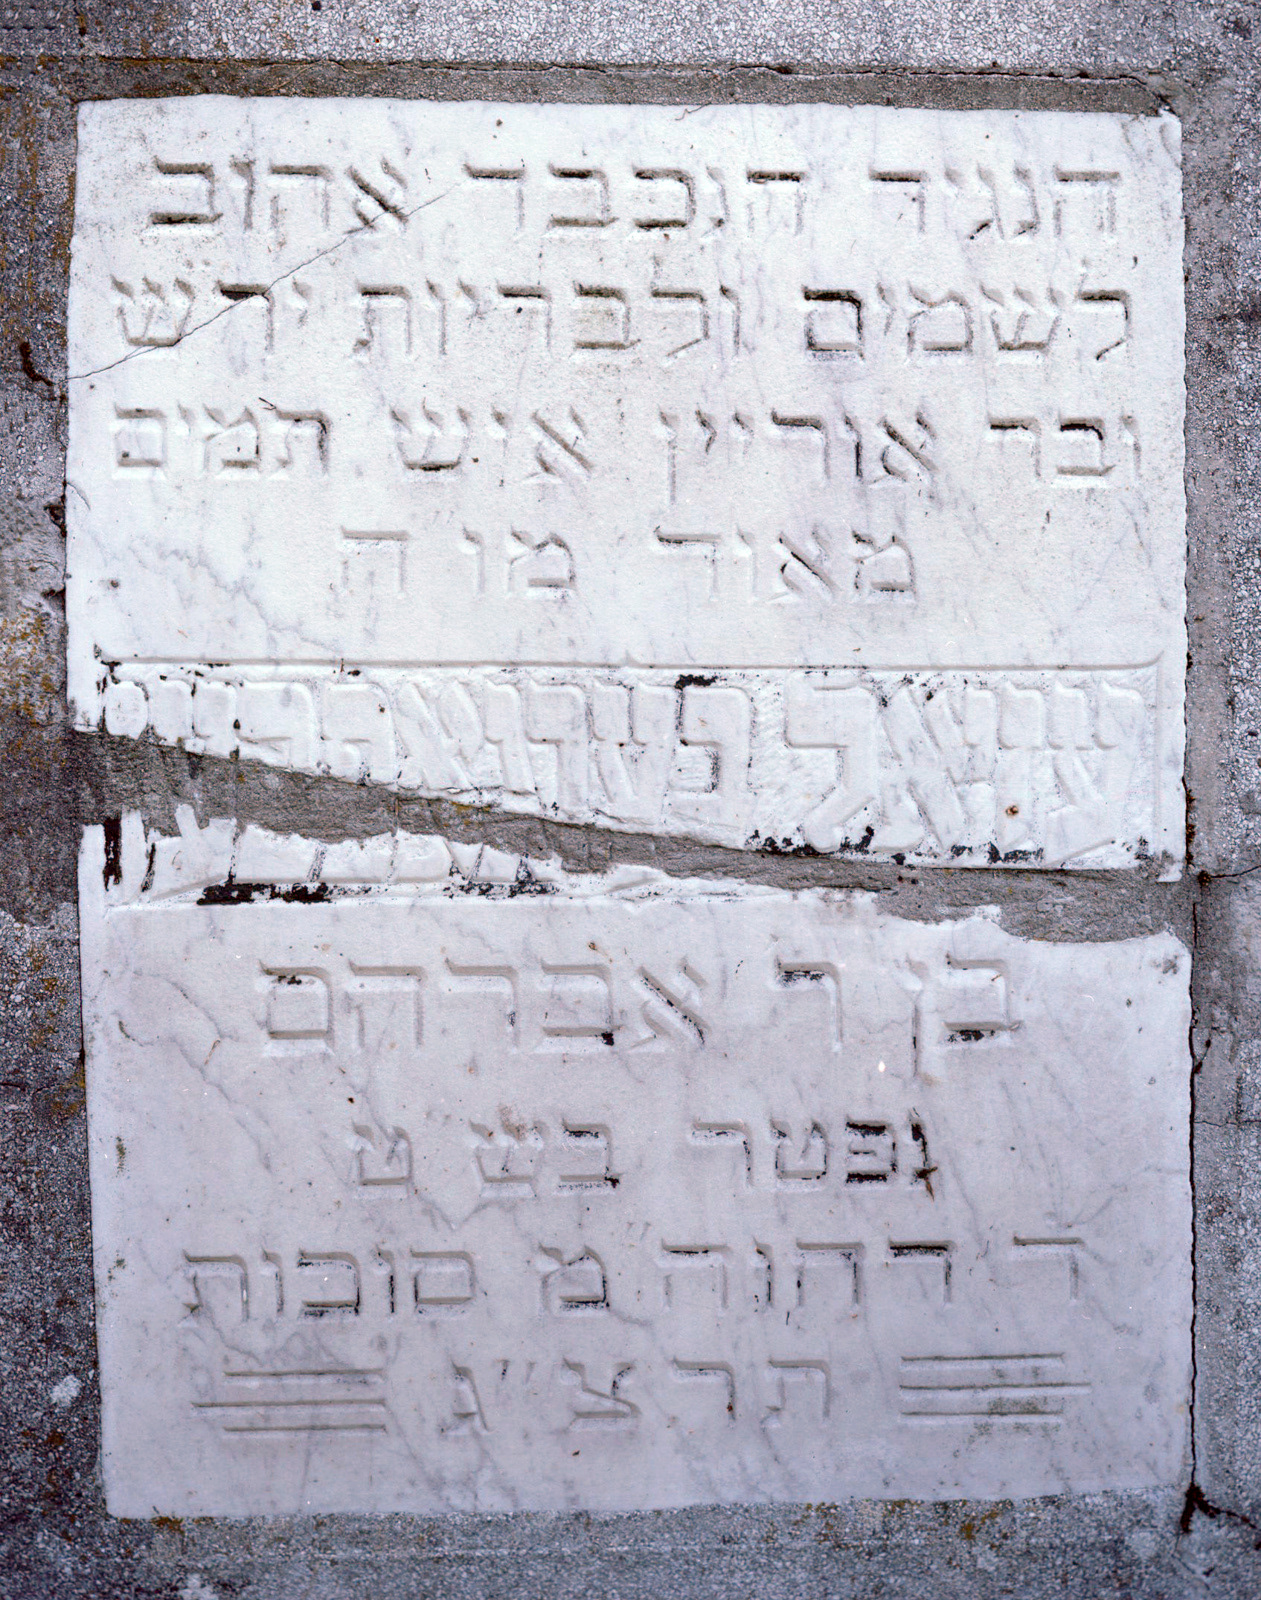 הנגיד הנכבד אהוב
לשמים ולבריות ירש
ובר אוריין איש תמים
מאוד מו ה
בן ר אברהם
נפטר בש ט
ד׳ דחוה״מ סוכות
תרצ״ג